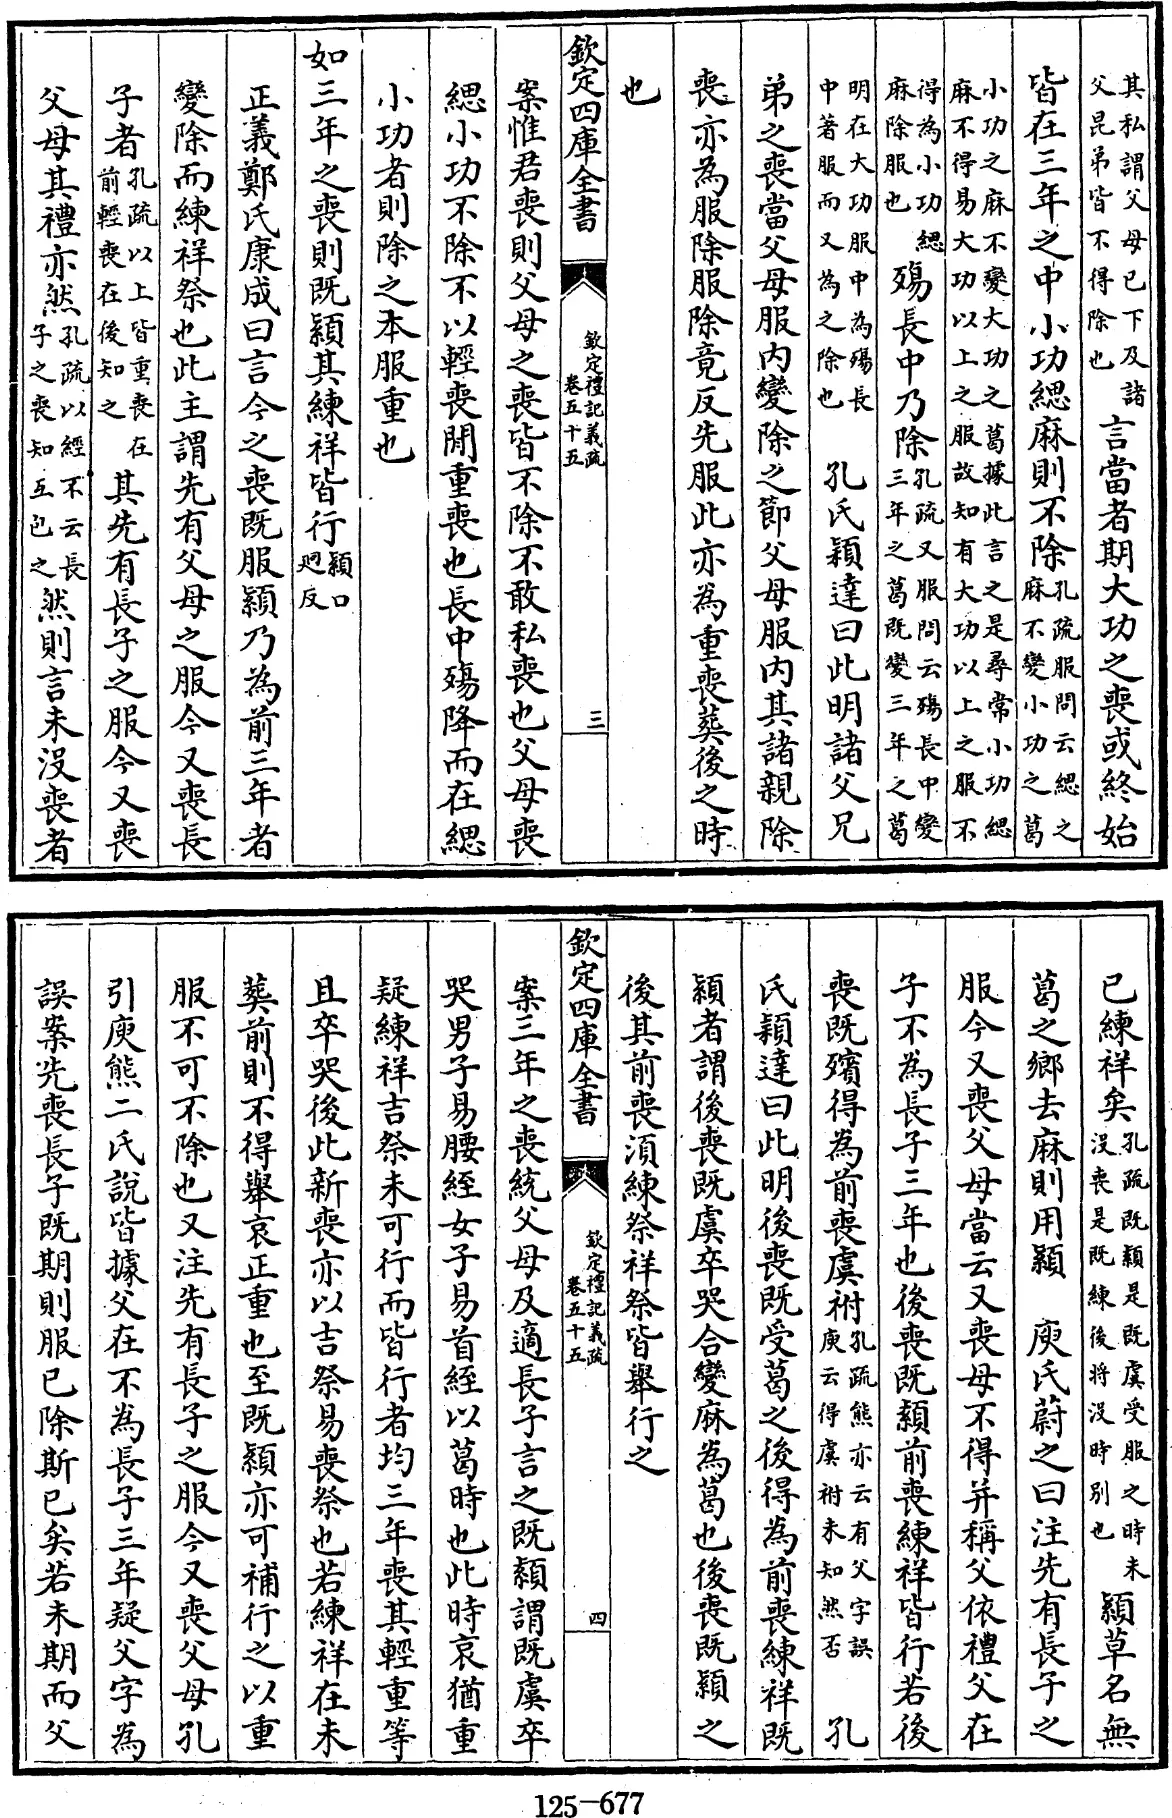 其私謂父母已下及諸父昆弟皆不得除也言當者期大功之喪或終始
皆在三年之中小功緦麻則不除孔疏服問云緦之麻不變小功之葛
小功之麻不變大功之葛據此言之是尋常小功緦麻不得易大功以上之服故知有大功以上之服不
得為小功緦麻除服也殤長中乃除孔疏又服問云殤長中變三年之葛既變三年之葛
明在大功服中為殤長中著服而又為之除也 孔氏穎達曰此明諸父兄
弟之喪當父母服内變除之節父母服内其諸親除
喪亦為服除服除竟反先服此亦為重喪葬後之時
也
欽定四庫全書 欽定禮記義疏卷五十五 三
案惟君喪則父母之喪皆不除不敢私喪也父母喪
緦小功不除不以輕喪閒重喪也長中殤降而在緦
小功者則除之本服重也
如三年之喪則既顈其練祥皆行顈口迥反
正義鄭氏康成曰言今之喪既服顈乃為前三年者
變除而練祥祭也此主謂先有父母之服今又喪長
子者孔疏以上皆重喪在前輕喪在後知之其先有長子之服今又喪
父母其禮亦然孔疏以經不云長子之喪知互包之然則言未沒喪者
已練祥矣孔疏既顈是既虞受服之時未沒喪是既練後將沒時別也顈草名無
葛之鄉去麻則用顈 庾氏蔚之曰注先有長子之
服今又喪父母當云又喪母不得并稱父依禮父在
子不為長子三年也後喪既顈前喪練祥皆行若後
喪既殯得為前喪虞祔孔疏熊亦云有父字誤庾云得虞祔未知然否 孔
氏穎達曰此明後喪既受葛之後得為前喪練祥既
顈者謂後喪既虞卒哭合變麻為葛也後喪既顈之
後其前喪須練祭祥祭皆舉行之
欽定四庫全書 欽定禮記義疏卷五十五 四
案三年之喪統父母及適長子言之既顈謂既虞卒
哭男子易腰絰女子易首絰以葛時也此時哀猶重
疑練祥吉祭未可行而皆行者均三年喪其輕重等
且卒哭後此新喪亦以吉祭易喪祭也若練祥在未
葬前則不得舉哀正重也至既顈亦可補行之以重
服不可不除也又注先有長子之服今又喪父母孔
引庾熊二氏說皆據父在不為長子三年疑父字為
誤案先喪長子既期則服已除斯已矣若未期而父
125-677